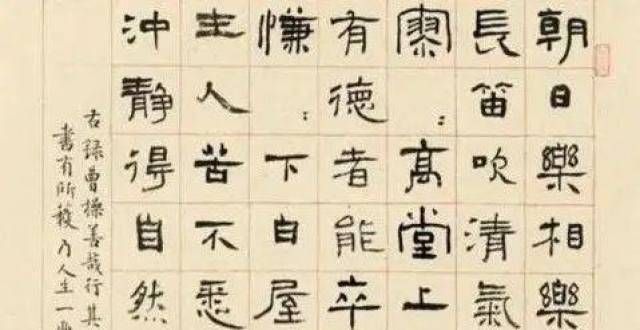 朝日樂相樂
長笛吹清氣
寥：高堂上
有德者能卒
慊：下白屋
主人苦不悉
沖靜得自然
右錄曹操善哉行其
書有所獲乃人生一